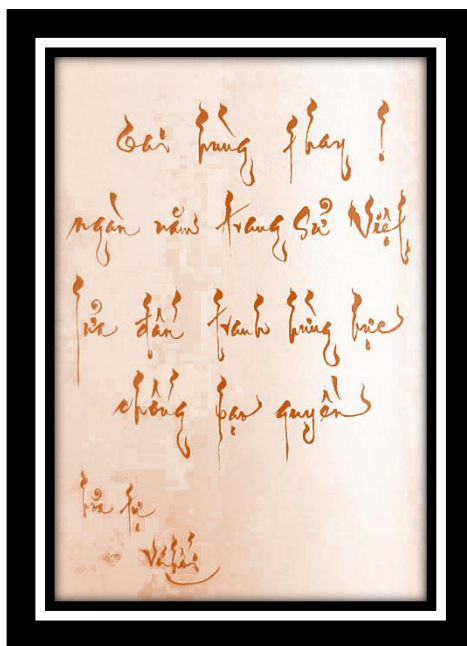 Oai hùng thay !
ngàn năm trang Sử Việt
lửa đấu tranh hùng hực
chống bạo quyền
hỏa tự